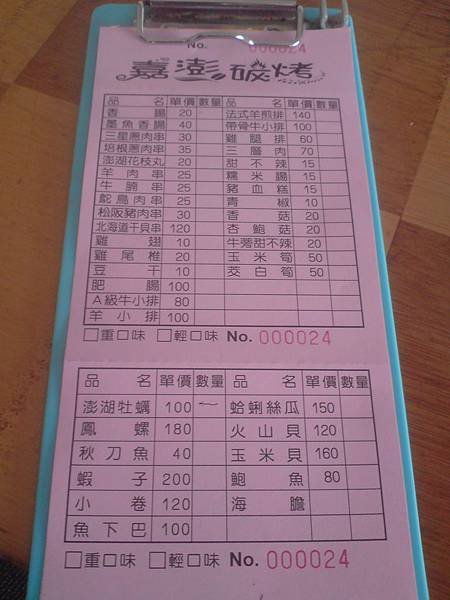 No. 000024
嘉澎碳烤
品名 單價 數量 品名 單價 數量
香腸 20 法式羊煎排 140
墨魚香腸 40 帶骨牛小排 100
三星蔥肉串 30 雞腿排 60
培根蔥肉串 35 三層肉 70
澎湖花枝丸 20 甜不辣 15
羊肉串 25 糯米腸 15
牛腩串 25 豬血糕 15
鴕鳥肉串 25 青椒 10
松阪豬肉串 30 香菇 20
北海道干貝串 120 杏鮑菇 20
雞翅 10 牛蒡甜不辣 20
雞尾椎 20 玉米筍 50
豆干 10 茭白筍 50
肥腸 100
A級牛小排 80
羊小排 100
□重口味 □輕口味 No. 000024
品名 單價 數量 品名 單價 數量
澎湖牡蠣 100 蛤蜊絲瓜 150
鳳螺 180 火山貝 120
秋刀魚 40 玉米貝 160
蝦子 200 鮑魚 80
小卷 120 海膽
魚下巴 100
□重口味 □輕口味 No. 000024